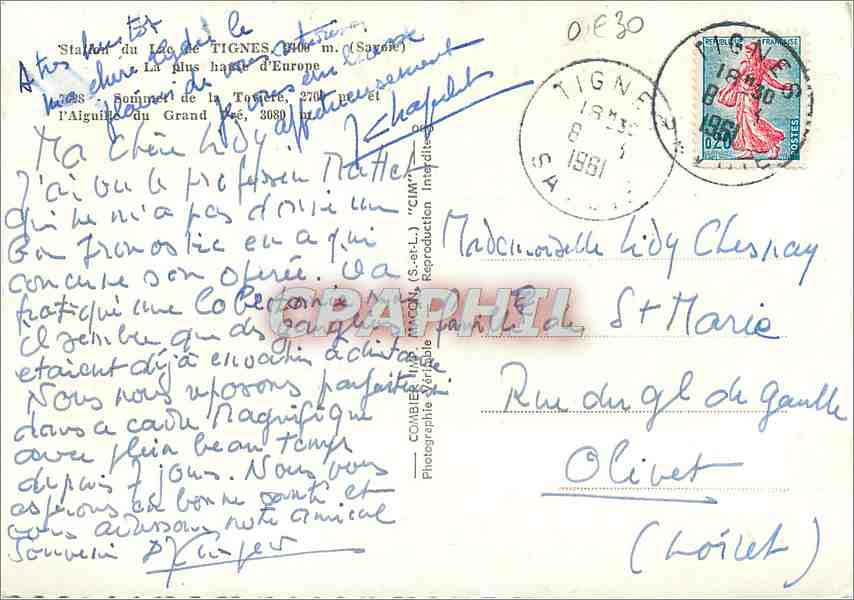 Station du Lac de TIGNES, 2100 m. (Savoie)
La plus haute d'Europe
Sommet de la Tovière, 2704 m. et
l'Aiguille du Grand Pré, 3080 m.
A très bientôt
ma chère Lidy le
plaisir de vous
affectueusement
Ma chère Lidy
J'ai vu le professeur Mallet
qui ne m'a pas donné un
bon pronostic en ce qui
concerne son opérée. Il a
pratiqué une
Il semble que des ganglions
étaient déjà envahis à distance
Nous nous reposons parfaitement
dans ce cadre magnifique
avec plein beau temps
depuis 7 jours. Nous vous
espérons en bonne santé et
vous adressons notre amical
souvenir
COMBIER IMP. MACON (S.-et-L.) "CIM"
Photographie Véritable Reproduction Interdite
0€30
TIGNES
18H30
8
1961
SAVOIE
TIGNES
18H30
8
1961
REPUBLIQUE FRANÇAISE
0,20
POSTES
Mademoiselle Lidy Chesnay
Ste Marie
Rue du gl de Gaulle
Olivet
(Loiret)
CPAPHIL